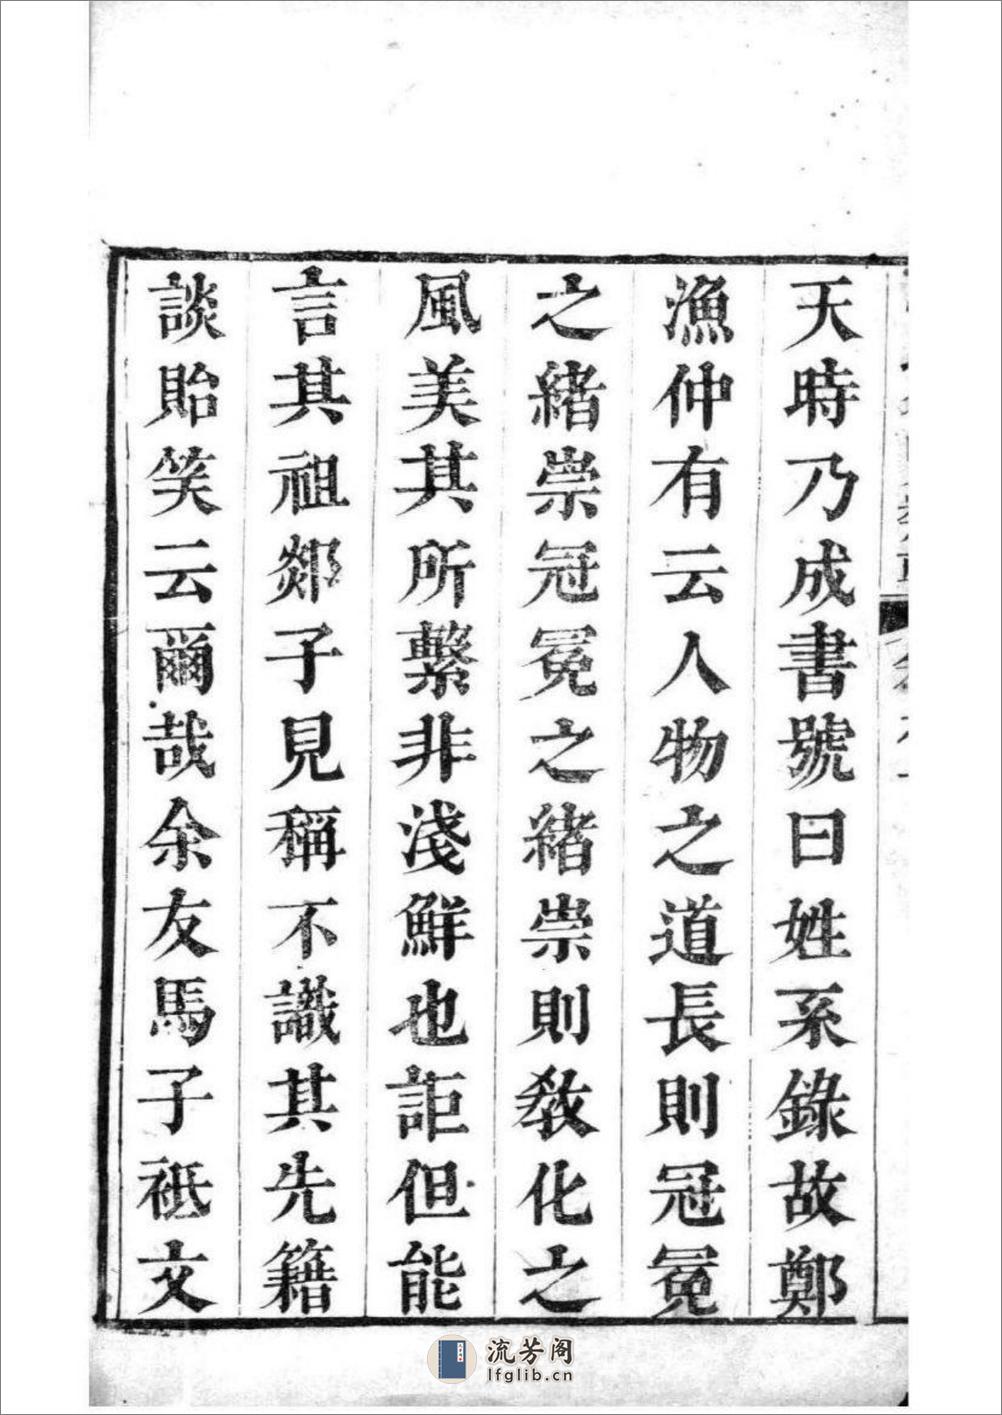 天時乃成書號曰姓系錄故鄭
漁仲有云人物之道長則冠冕
之緒崇冠冕之緒崇則敎化之
風美其所繫非淺鮮也詎但能
言其祖郯子見稱不識其先籍
談貽笑云爾哉余友馬子祇文
流芳阁
lfglib.cn